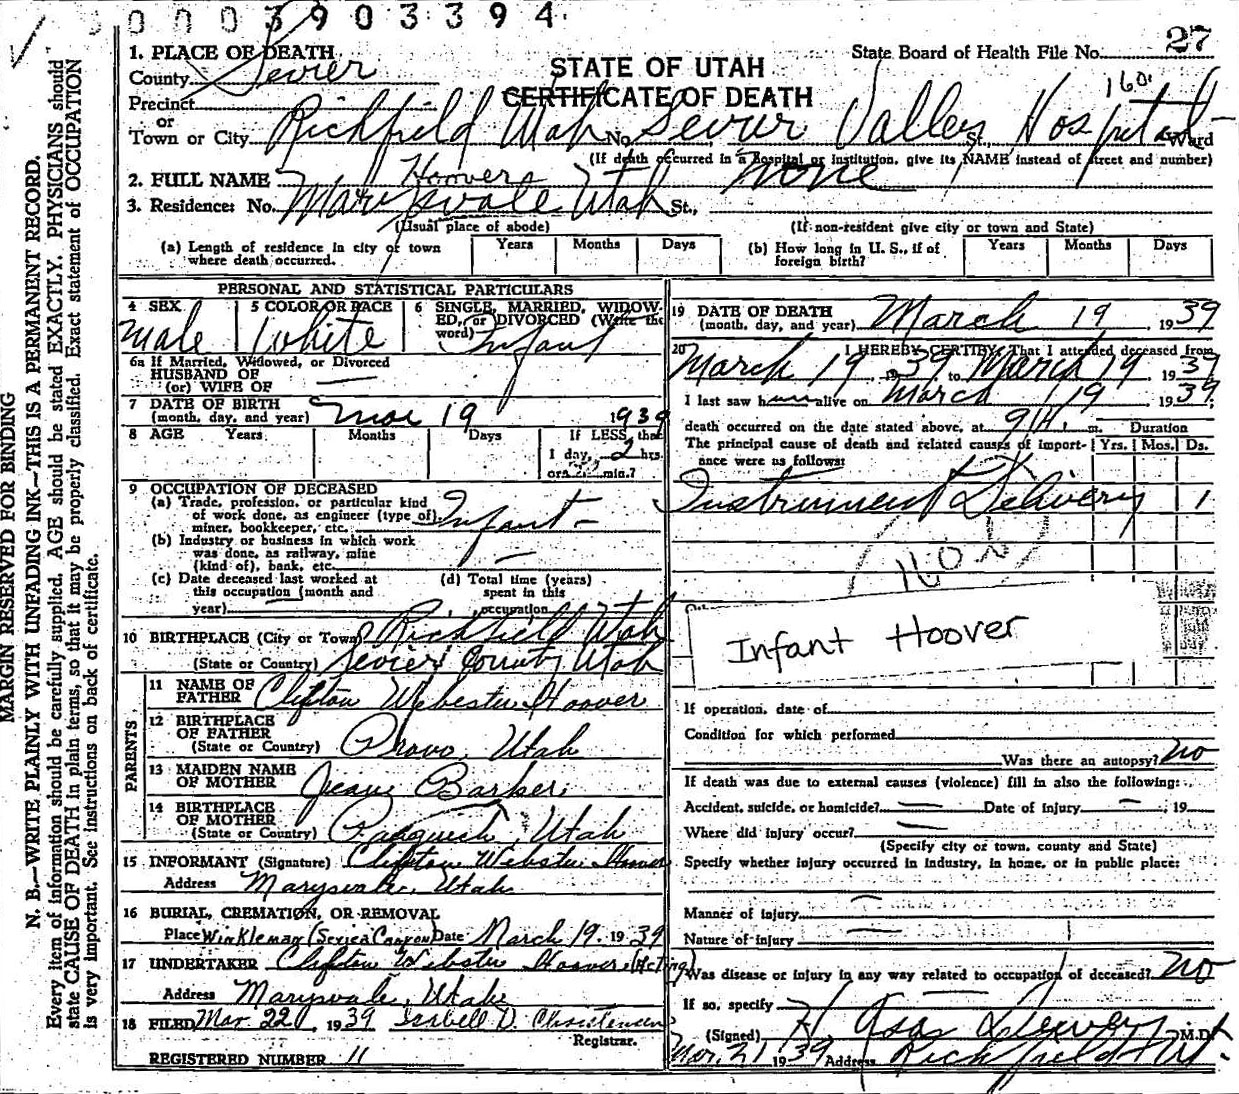 0003903394
1. PLACE OF DEATH
County Sevier
STATE OF UTAH
CERTIFICATE OF DEATH
State Board of Health File No. 27
160
Precinct
or
Town or City Richfield Utah No. Sevier Valley St., Hospital Ward
(If death occurred in a hospital or institution, give its NAME instead of street and number)
2. FULL NAME Hoover none
3. Residence: No. Marysvale Utah St.,
(Usual place of abode) (If non-resident give city or town and State)
(a) Length of residence in city or town where death occurred. Years Months Days
(b) How long in U. S., if of foreign birth? Years Months Days
PERSONAL AND STATISTICAL PARTICULARS
4 SEX Male
5 COLOR OR RACE White
6 SINGLE, MARRIED, WIDOWED, or DIVORCED (Write the word) Infant
6a If Married, Widowed, or Divorced
HUSBAND OF
(or) WIFE OF
7 DATE OF BIRTH
(month, day, and year) Mar 19 1939
8 AGE Years Months Days If LESS than
1 day, 2 hrs.
or min.?
9 OCCUPATION OF DECEASED
(a) Trade, profession, or particular kind
of work done, as engineer (type of)
miner, bookkeeper, etc. Infant
(b) Industry or business in which work
was done, as railway, mine
(kind of), bank, etc.
(c) Date deceased last worked at
this occupation (month and
year)
(d) Total time (years)
spent in this
occupation
10 BIRTHPLACE (City or Town) Richfield Utah
(State or Country) Sevier County Utah
PARENTS
11 NAME OF
FATHER Clifton Webster Hoover
12 BIRTHPLACE
OF FATHER
(State or Country) Provo, Utah
13 MAIDEN NAME
OF MOTHER Jean Barker
14 BIRTHPLACE
OF MOTHER
(State or Country) Panguich, Utah
15 INFORMANT (Signature) Clifton Webster Hoover
Address Marysvale, Utah
16 BURIAL, CREMATION, OR REMOVAL
Place Winkleman (Sevier Canyon) Date March 19. 1939
17 UNDERTAKER Clifton Webster Hoover (Acting)
Address Marysvale, Utah
18 FILED Mar 22, 1939 Isabell D. Christensen
Registrar.
REGISTERED NUMBER 11
19 DATE OF DEATH
(month, day, and year) March 19 1939
20 I HEREBY CERTIFY, That I attended deceased from
March 19 1939, to March 19, 1939
I last saw h alive on March 19 1939,
death occurred on the date stated above, at 9 A. m. Duration
The principal cause of death and related causes of importance were as follows: Yrs. Mos. Ds.
Instrument Delivery 1
Infant Hoover
If operation, date of
Condition for which performed
Was there an autopsy? No
If death was due to external causes (violence) fill in also the following:
Accident, suicide, or homicide? Date of injury , 19
Where did injury occur?
(Specify city or town, county and State)
Specify whether injury occurred in industry, in home, or in public place:
Manner of injury
Nature of injury
Was disease or injury in any way related to occupation of deceased? No
If so, specify
(Signed) M.D.
Mar. 21 1939 Address Richfield Ut.
MARGIN RESERVED FOR BINDING
N. B.—WRITE PLAINLY WITH UNFADING INK—THIS IS A PERMANENT RECORD.
Every item of information should be carefully supplied. AGE should be stated EXACTLY. PHYSICIANS should
state CAUSE OF DEATH in plain terms, so that it may be properly classified. Exact statement of OCCUPATION
is very important. See instructions on back of certificate.